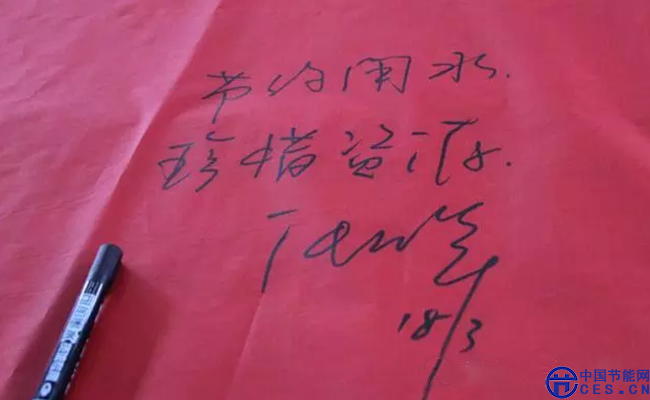 节约用水.
珍惜资源.
18/3
中国节能网
CES.CN